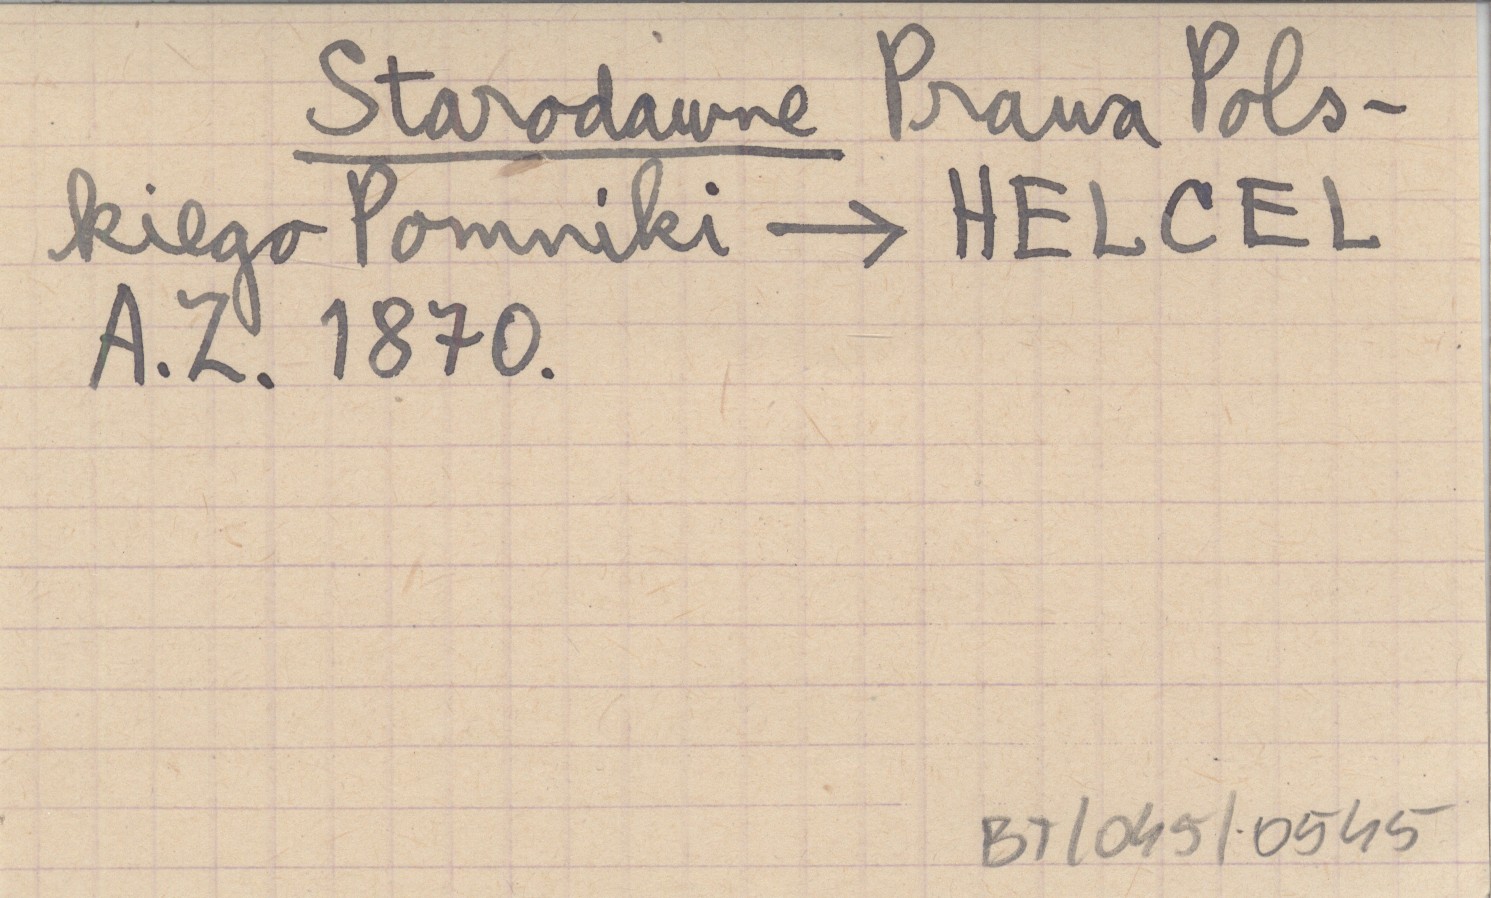 Starodawne Prawa Pols-
kiego Pomniki → HELCEL
A.Z. 1870.
BT/045/0545